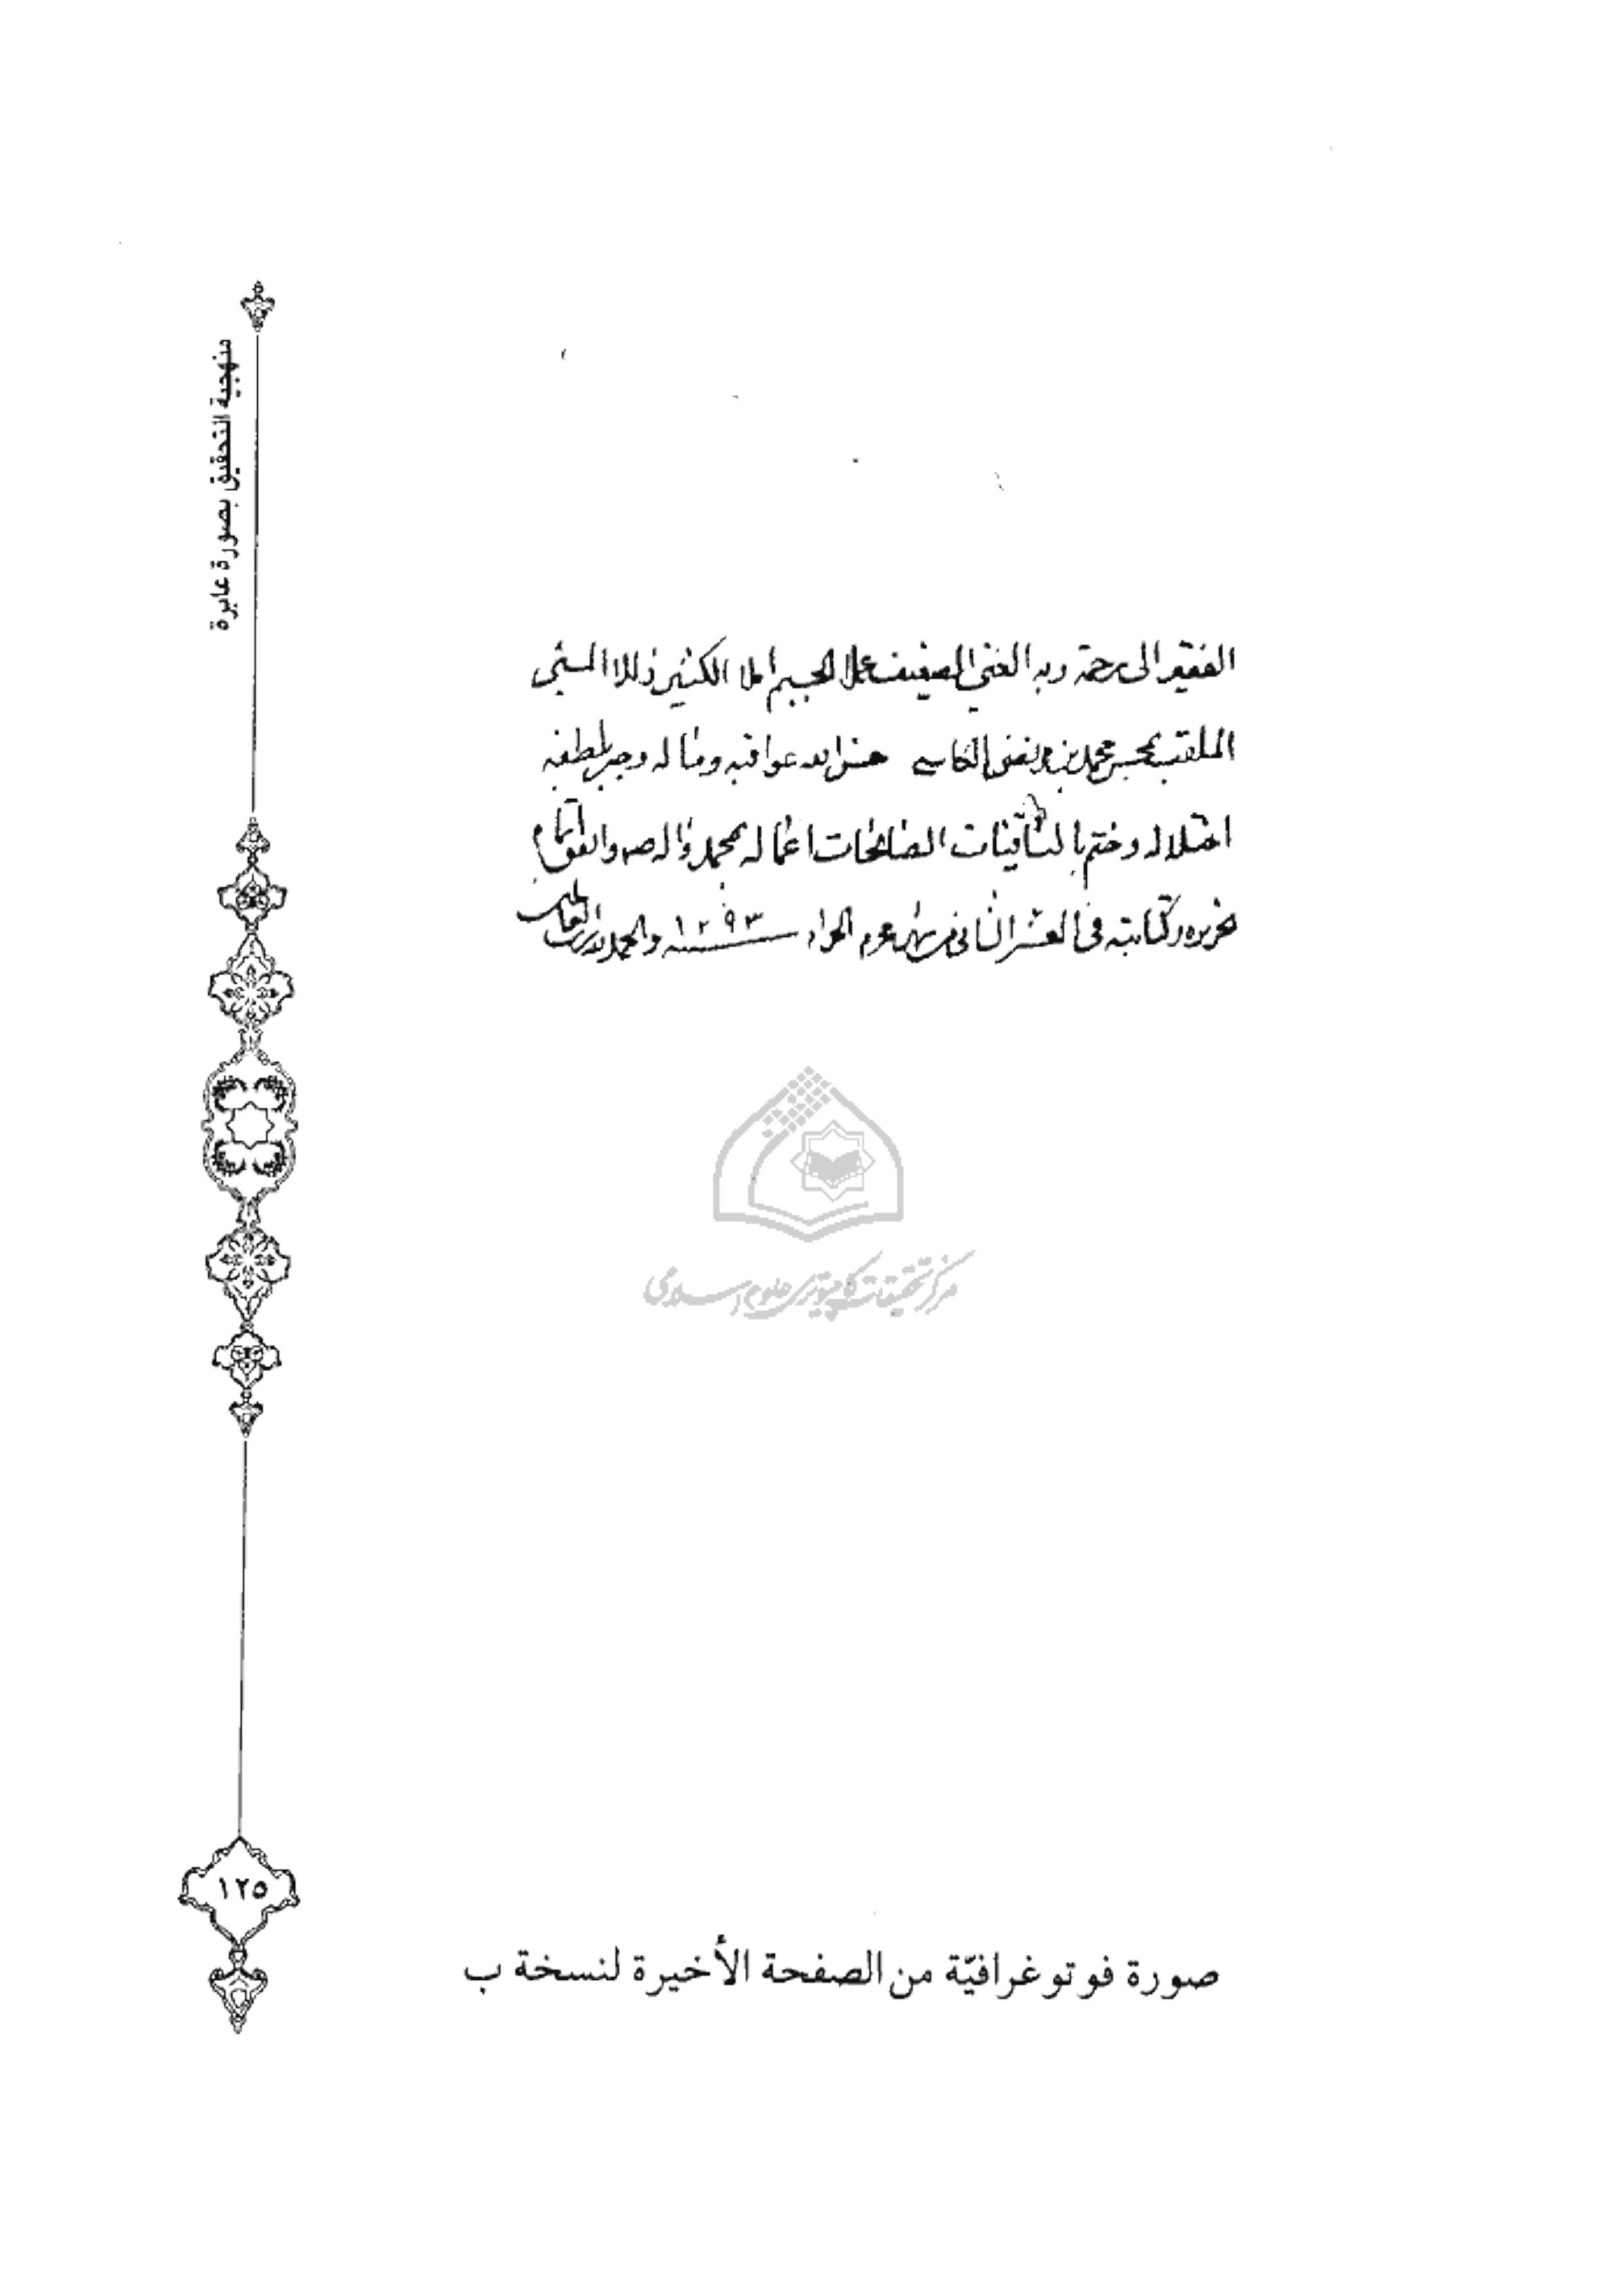 منهجية التحقيق بصورة عابرة
الفقير الى رحمة ربه الغني الضعيف عملا الجسيم املا الكثير زللا المسئ
الملقب بمحسن محمد بن مرتضى الكاسى حسن الله عواقبه وماله وجبر بلطفه
اختلاله وختم بالباقيات الصالحات اعماله بمحمد واله واتفق اتمام
تحريره وكتابته في العشر الثاني من شهر محرم الحرام سنه ١٢٩٣ والحمد لله رب العالمين
مركز تحقيقات كامپيوترى علوم اسلامى
١٢٥
صورة فوتوغرافيّة من الصفحة الأخيرة لنسخة ب